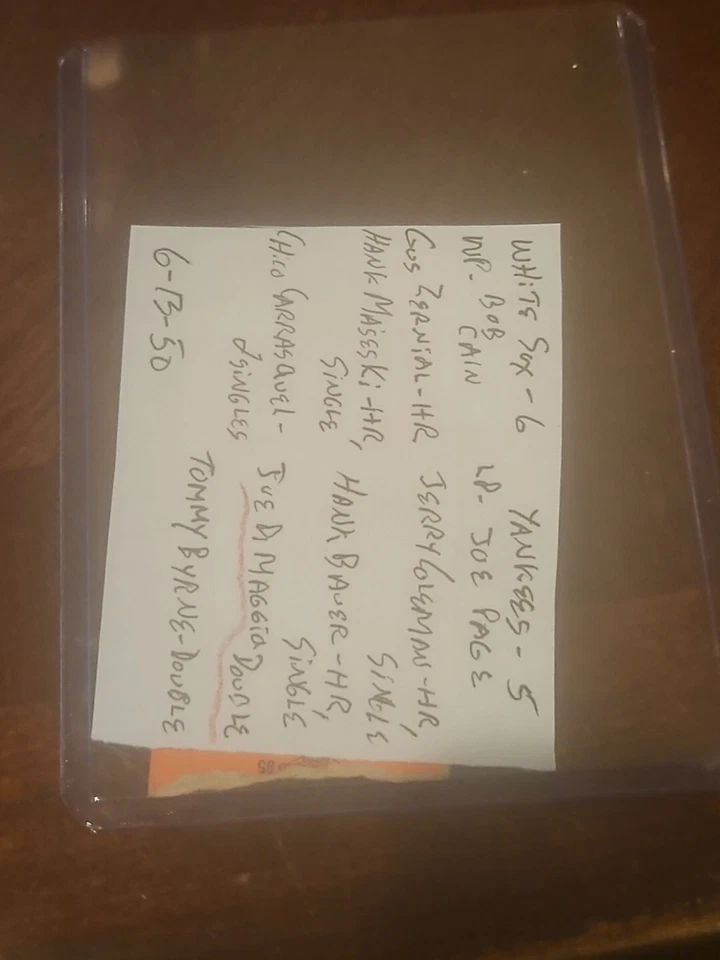 WHiTE Sox - 6
WP - BOB CAIN
GUS ZERNiAL - HR
HANK MAjESKi - HR, SINGLE
CHiCO CARRASQUEL - 2 SINGLES
6-13-50
YANKEES - 5
LP - JOE PAGE
JERRY COLEMAN - HR, SINGLE
HANK BAUER - HR, SINGLE
JOE DiMAGGiO DOUBLE
TOMMY BYRNE - DOUBLE